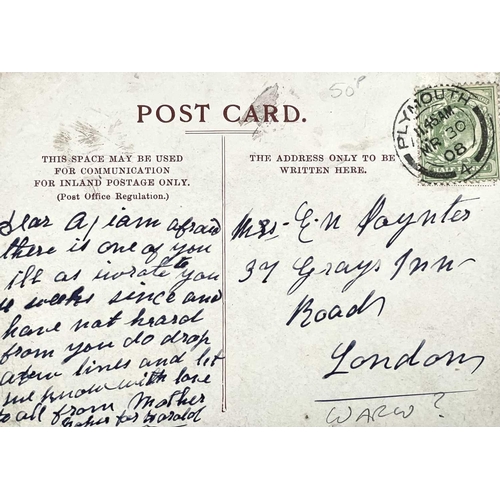 50P
POST CARD.
THIS SPACE MAY BE USED
FOR COMMUNICATION
FOR INLAND POSTAGE ONLY.
(Post Office Regulation.)
THE ADDRESS ONLY TO BE
WRITTEN HERE.
PLYMOUTH
11.45AM
MR 30
08
HALF
Dear A I am afraid
there is one of you
ill as i wrote to you
4 weeks since and
have not heard
from you do drop
a few lines and let
me know with love
to all from Mother
for Harold
Mrs E. N Poynter
37 Grays Inn
Road
London
WARW?